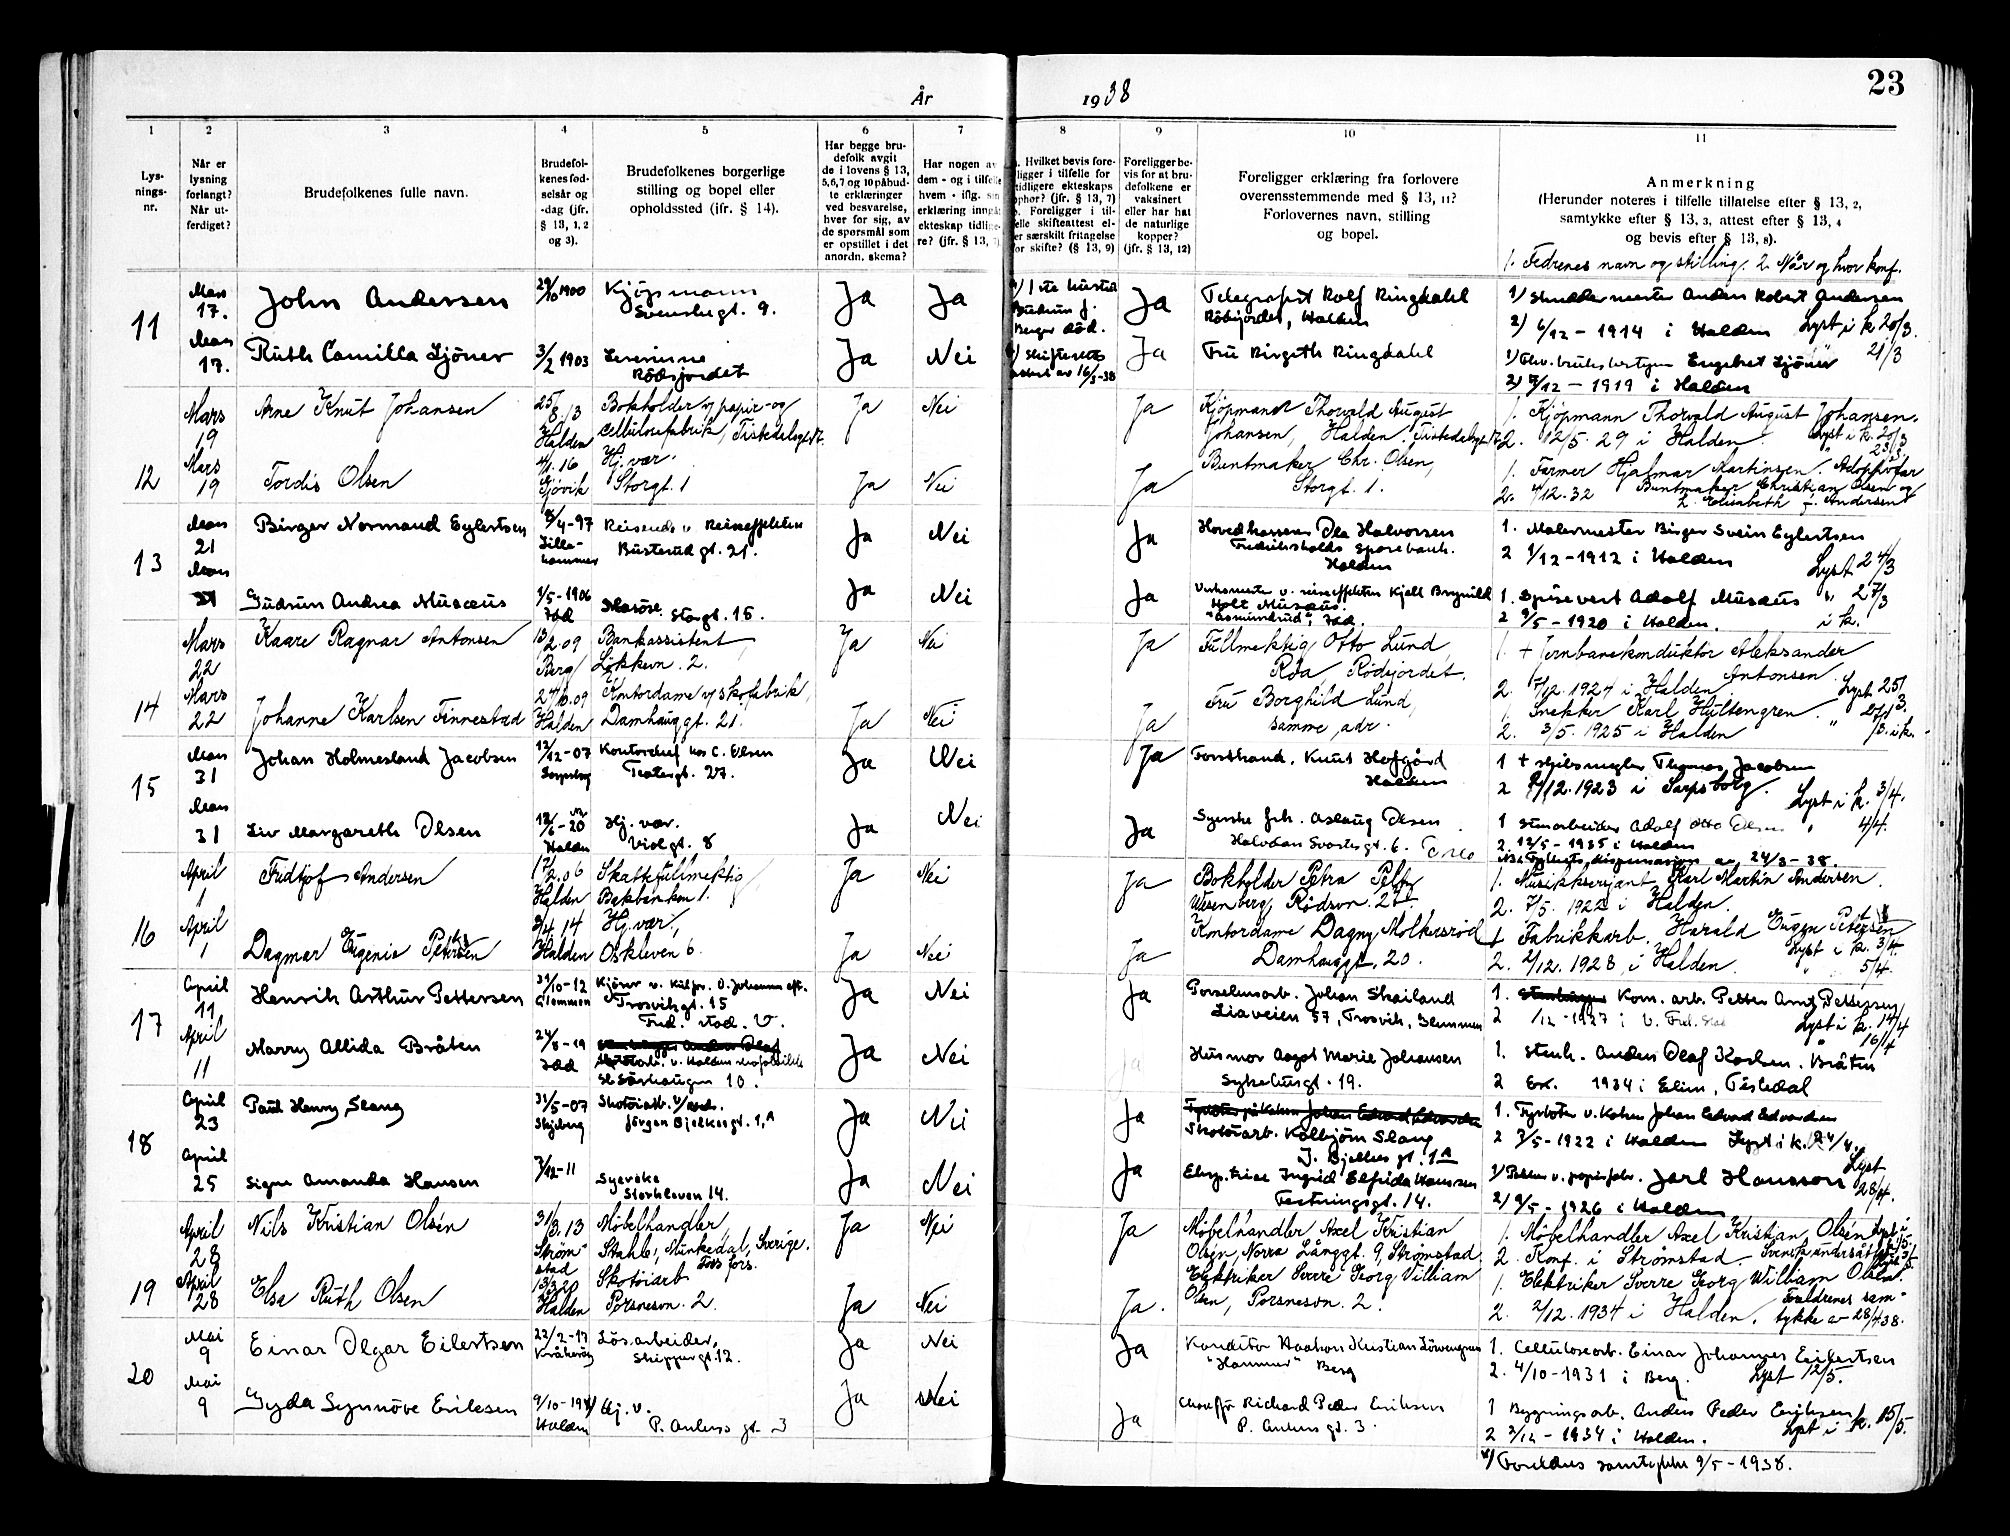 23
År 1938
1 2 3 4 5 6 7 8 9 10 11
Lys-
nings-
nr.
Når er
lysning
forlangt?
Når ut-
ferdiget?
Brudefolkenes fulle navn.
Brudefol-
kenes fød-
selsår og
-dag (jfr.
§ 13, 1, 2
og 3).
Brudefolkenes borgerlige
stilling og bopel eller
opholdssted (jfr. § 14).
Har begge bru-
defolk avgit
de i lovens § 13,
5, 6, 7 og 10 påbud-
te erklæringer
ved besvarelse,
hver for sig, av
de spørsmål som
er opstillet i det
anordn. skema?
Har nogen av
dem - og i tilfelle
hvem - iflg. sin
erklæring inngått
ekteskap tidlige-
re? (jfr. § 13, 7)
Hvilket bevis fore-
ligger i tilfelle for
tidligere ekteskaps
ophør? (jfr. § 13, 7)
Foreligger i til-
elle skifteattest el-
er særskilt fritagelse
for skifte? (§ 13, 9)
Foreligger be-
vis for at bru-
defolkene er
vaksinert
eller har hat
de naturlige
kopper?
(jfr. § 13, 12)
Foreligger erklæring fra forlovere
overensstemmende med § 13, 11?
Forlovernes navn, stilling
og bopel.
Anmerkning
(Herunder noteres i tilfelle tillatelse efter § 13, 2,
samtykke efter § 13, 3, attest efter § 13, 4
og bevis efter § 13, 8).
1. Fedrenes navn og stilling. 2. Når og hvor konf.
11
Mars
17.
John Andersen
29/10 1900
Kjøpmann
Svenskegt. 9.
Ja
Ja
1ste hustru
Gudrun f.
Berger död.
Ja
Telegrafist Rolf Ringdahl
Rödsjordet, Halden
1) Skreddermester Anders Robert Andersen
2) 6/12 - 1914 i Halden Lyst i k 20/3.
21/3
Mars
17.
Ruth Camilla Sjöner
3/2 1903
Lererinne
Rödsjordet
Ja
Nei
attest av 16/3-38
Ja
Fru Birgith Ringdahl
Engebret Sjöner
2) 7/12 - 1919 i Halden
12
Mars
19
Arne Knut Johansen
25/8.13
Halden
Bokholder v/ papir- og
cellulosefabrik, Tistedalsgt.
Ja
Nei
Ja
Kjøpmand Thorvald August
Johansen, Halden. Tistedalsgt
1. Kjøpmann Thorvald August Johansen.
2. 12/5. 29 i Halden. Lyst i k. 20/3
23/3
Mars
19
Tordis Olsen
4/1. 16
Gjøvik
Hj. vær.
Storgt. 1
Ja
Nei
Ja
Buntmaker Chr. Olsen,
Storgt. 1.
1. Farmer Hjalmar Martinsen. Adoptivfar
Buntmaker Christian Olsen og
2. 4/12. 32 Elisabeth f. Andersen
13
Mars
21
Birger Normand Eylertsen
8/4-97
Lille-
hammer
Reisende v. Reiseeffekter
Busterudgt. 21.
Ja
Nei
Ja
Hovedkasserer Ole Halvorsen
Fredrikshalds Sparebank.
Halden
1. Malermester Birger Svein Eylertsen
2 1/12 - 1912 i Halden Lyst 24/3
Mars
21
Gudrun Andrea Musæus
1/5 - 1906
Idd
Storgt. 15.
Ja
Nei
Ja
Verksmester v. reiseeffekter Kjell Brynild
Holt Musæus.
"Asmundrud", Idd.
1. Spisevert Adolf Musæus " 27/3
2 9/5 - 1920 i Halden. i k.
14
Mars
22
Kaare Ragnar Antonsen
13/2.09
Berg
Bankassistent,
Løkkevn. 2.
Ja
Nei
Ja
Fullmektig Otto Lund,
Roa, Rödsjordet.
1. + Jernbanekonduktør Aleksander
Antonsen.
2. 7/12. 1924 i Halden Lyst 25/3.
Mars
22
Johanne Karlsen Finnestad
24/10.09
Halden
Kontordame v/ skofabrik,
Damhauggt. 21.
Ja
Nei
Ja
Fru Borghild Lund,
samme adr.
1. Snekker Karl Hultengren. " 27/3. i k.
2. 3/5. 1925 i Halden
15
Mars
31
Johan Holmesland Jacobsen
12/12 - 07
Sarpsborg
Kontorchef hos C. Olsen
Teatergt. 27.
Ja
Nei
Ja
Forstkand. Knut Hofgård
Halden
1 + skibsmegler Thomas Jacobsen
2 2/12. 1923 i Sarpsborg. Lyst i k. 3/4.
Mars
31
Liv Margareth Olsen
Halden
Hj. vær.
Violgt. 8
Ja
Nei
Ja
Syerske frk. Aslaug Olsen
Halvdan Svartesgt. 6. Oslo
1 Stenarbeider Adolf Otto Olsen " 4/4.
2. 12/5 - 1935 i Halden
dispensasjon av 24/3 - 38.
16
April
1
Fridtjof Andersen
17/2.06
Halden
Skattefullmektig,
Bakbanken 1.
Ja
Nei
Ja
Bokholder Petra
Wesenberg, Rödsvn. 27.
1. Musikksersjant Karl Martin Andersen.
2. 7/5. 1922 i Halden.
April
1
Dagmar Eugenie Petersen
2/4. 14
Halden
Hj. vær,
Oskleven 6.
Ja
Nei
Ja
Kontordame Dagny Molkersröd
Damhauggt. 20.
1 Fabrikkarb. Harald Eugen Petersen
Lyst i k. 3/4.
2. 2/12. 1928, i Halden. " 5/4.
17
April
11
Henrik Arthur Pettersen
Glemmen
Trosvikgt. 15
Fred. stad. V.
Ja
Nei
Ja
Porselensarb. Johan Skailand
Liaveien 57, Trosvik, Glemmen
1. Kom. arb. Petter Pettersen
2 /12 - 1927 i V. Fred. stad Lyst i k. 14/4
16/4
April
11
Marry Allida Bråten
24/8 - 19
Idd
v. Halden skofabrikk
Sörhaugen 10.
Ja
Nei
Ja
Husmor Aagot Marie Johansen
Sykehusgt. 19.
1. Stenh. Anders Olaf Karlsen Bråten
2 1934 i Elim, Tistedal
18
April
23
Paul Henry Slang
31/5 - 07
Skjeberg
Skotöiarb.
Jörgen Bjelkesgt. 1, A
Ja
Nei
Ja
Skotöiarb. Kolbjörn Slang
J. Bjelkes gt. 1A
1. Fyrböter v. Johan Edvard Edvardsen
2 7/5 - 1922 i Halden Lyst i k. 24/4.
April
25
Signe Amanda Hansen
7/12 - 11
Syerske
Storkleven 14.
Ja
Nei
Ja
Eksp. trise Ingrid Elfrida Hansen
Festningsgt. 14.
Jarl Hansson Lyst
28/4.
2) 9/5 - 1926 i Halden
19
April
28
Nils Kristian Olsén
31/3. 13
Strøm-
stad
Møbelhandler,
Stahle, Munkedal, Sverige.
Foss fors.
Ja
Nei
Ja
Møbelhandler Axel Kristian
Olsén, Norra Långgt. 9, Strømstad
1. Møbelhandler Axel Kristian Olsén
2. Konf. i Strømstad. Svensk undersått
April
28
Elsa Ruth Olsen
13/3 20
Halden
Skotöiarb
Porsnesvn. 2.
Ja
Nei
Ja.
Elektriker Sverre Georg William
Olsen, Porsnesvn. 2.
1. Elektriker Sverre Georg William Olsen.
Foreldrenes sam-
2. 2/12. 1934 i Halden. tykke av 28/4 38.
20
Mai
9
Einar Olgar Eilertsen
22/2 - 17
Kråkerøy
Løsarbeider,
Skippergt. 12.
Ja
Nei
Ja
Konditor Haakon Kristian Löwengren
"Hammer" Berg
1. Celluloseorb. Einar Johannes Eilertsen
2. 4/10 - 1931 i Berg. Lyst 12/5.
Mai
9
Gyda Synnöve Eriksen
Halden
Hj. v.
P. Ankers gt. 3
Ja
Nei
Ja
Chauffør Richard Peder Eriksen
P. Ankers gt. 3.
1 Bygningsarb. Anders Peder Eriksen
Lyst i k. 15/5.
2 2/12 - 1934 i Halden.
Foreldres samtykke 9/5 - 1938.